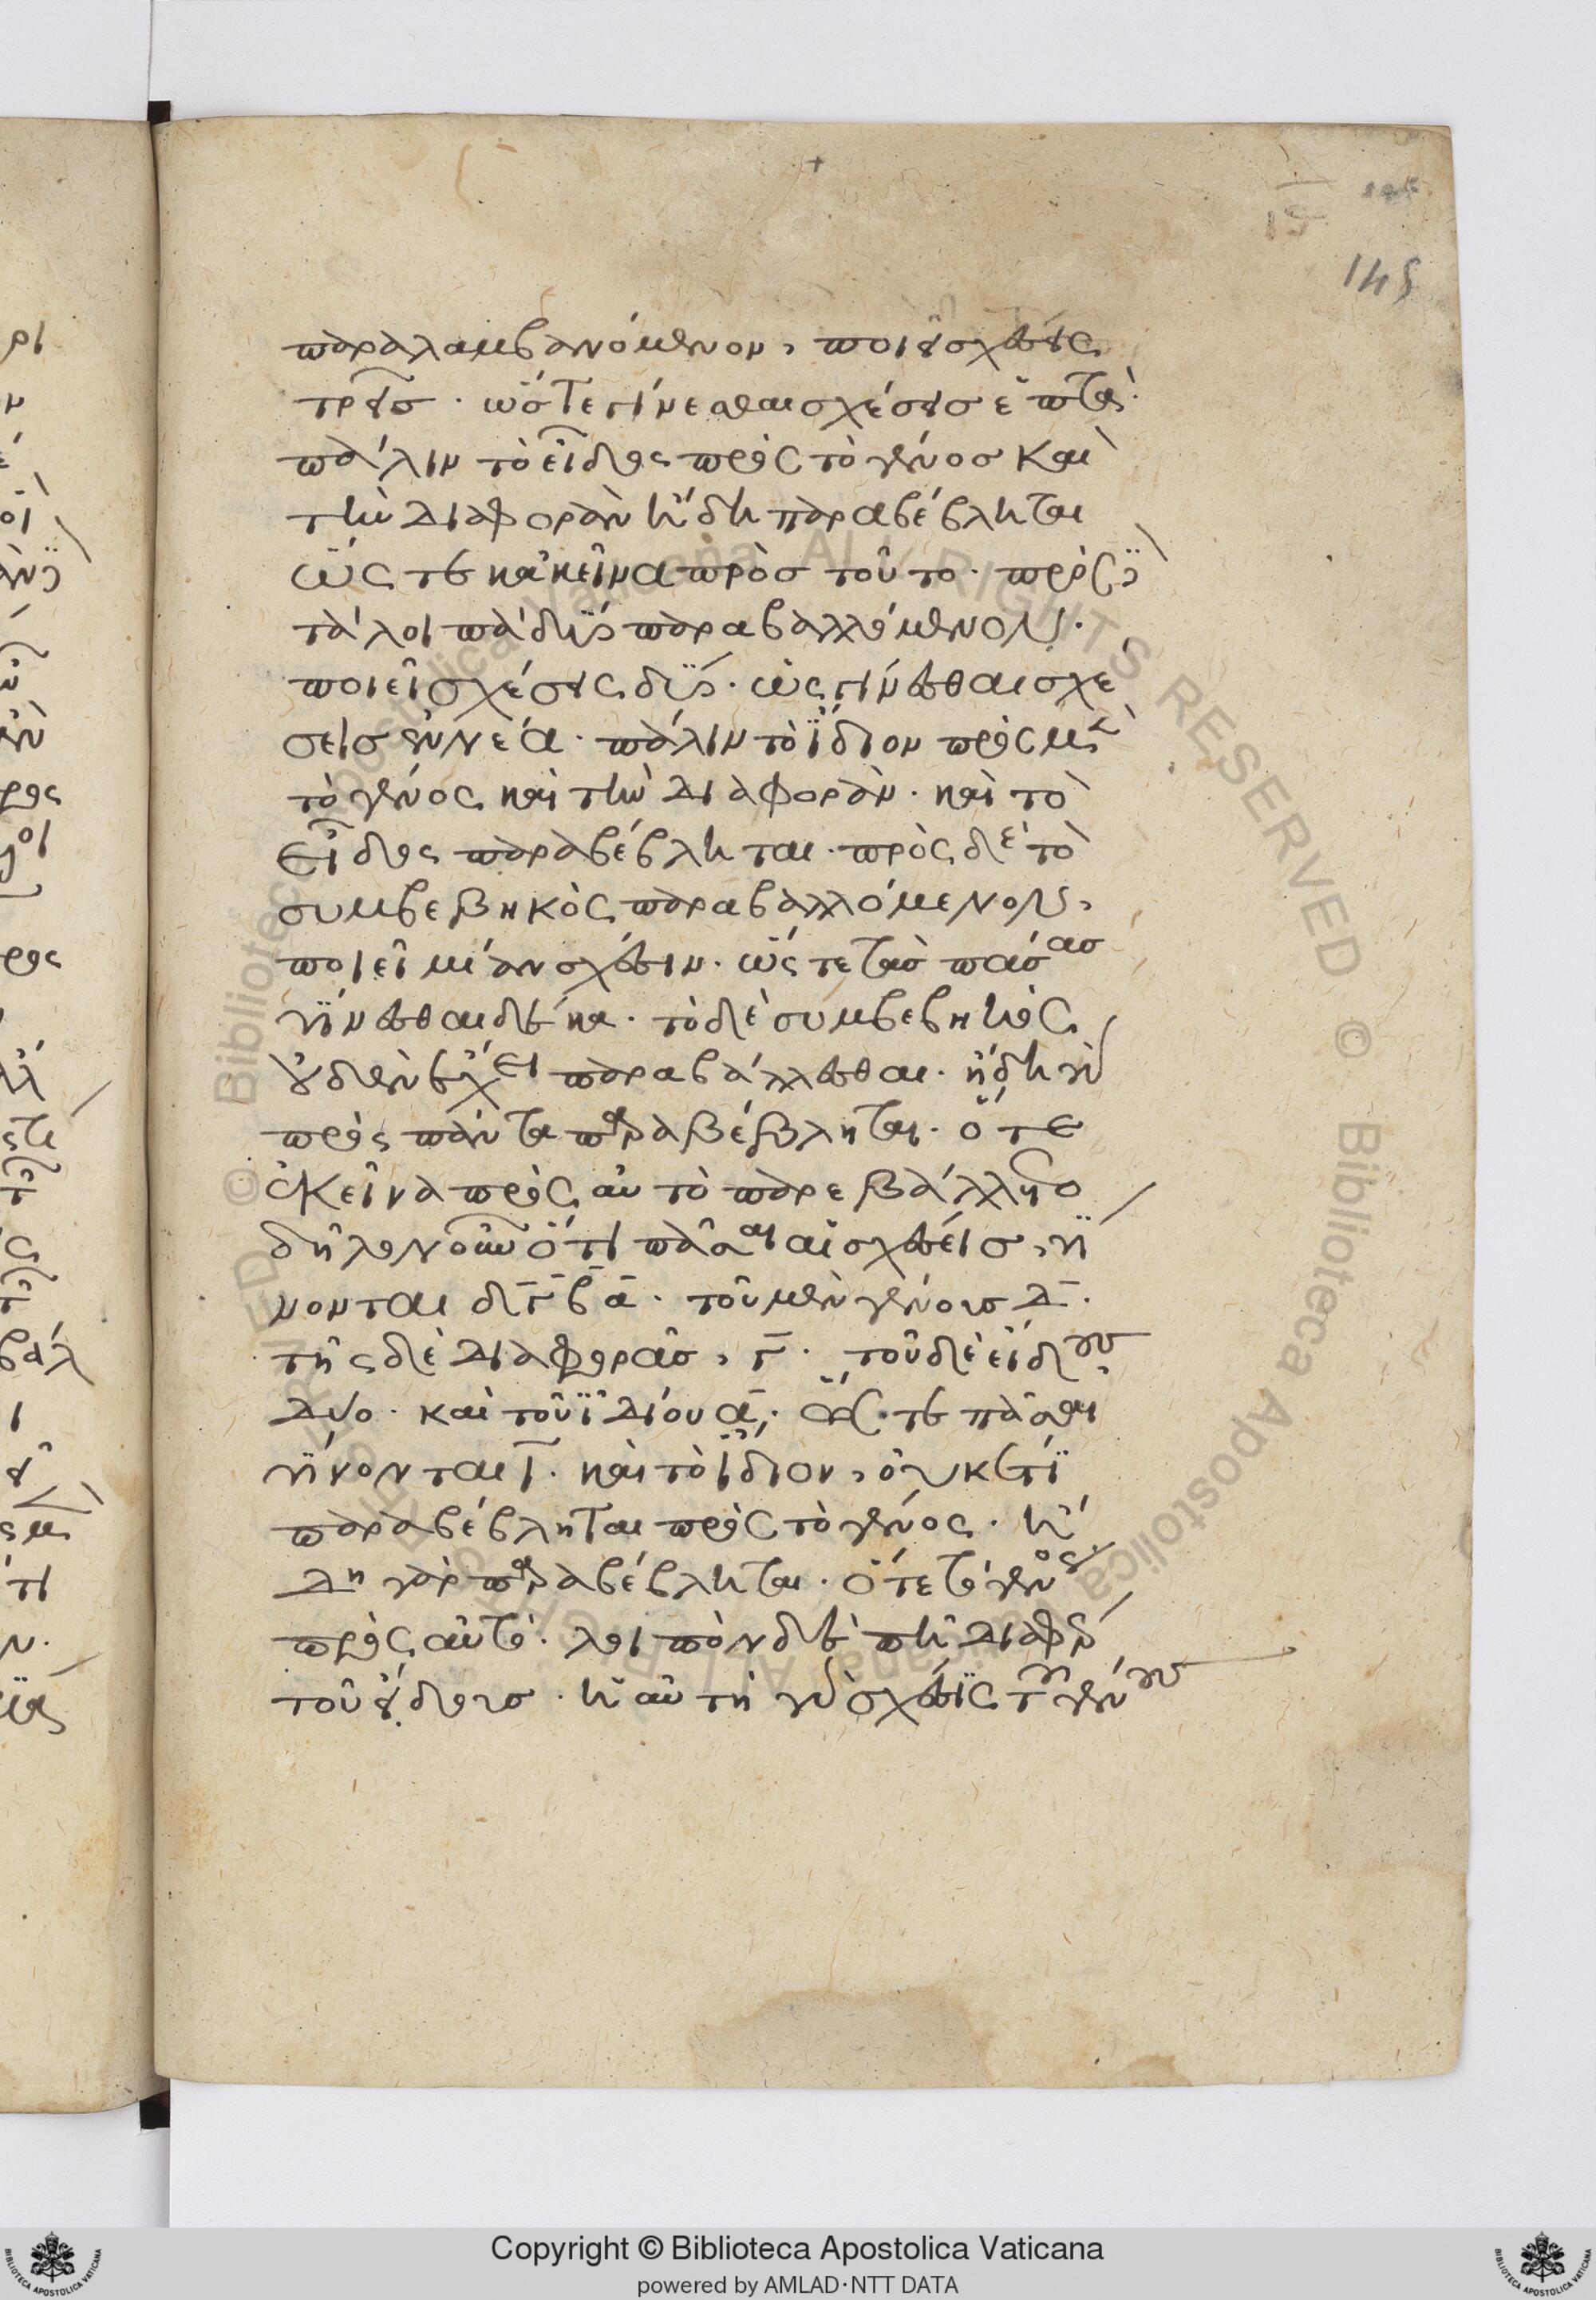 145
παραλαμβανόμενον, ποιεῖ σχέσεις
τρεῖσ. ὥστε γίνεσθαι σχέσεισ ἑπτά.
πάλιν τὸ εἶδος πρὸς τὸ γένοσ καὶ
τὴν διαφορὰν ἤδη παραβέβληται
ὥς τε κἀκεῖνα πρὸσ τοῦτο. πρὸς δὲ
τὰ λοιπὰ δύο παραβαλλόμενον.
ποιεῖ σχέσεις δύο. ὡς γίνεσθαι σχέ
σεισ ἐννέα. πάλιν τὸ ἴδιον πρὸς μὲν
τὸ γένος καὶ τὴν διαφορὰν. καὶ τὸ
εἶδος παραβέβληται. πρὸς δὲ τὸ
συμβεβηκὸς παραβαλλόμενον,
ποιεῖ μίαν σχέσιν. ὥς τε τὰσ πάσασ
γίνεσθαι δέκα. τὸ δὲ συμβεβηκὸς
οὐδὲν ἔχει παραβάλλεσθαι. ἤδη γὰρ
πρὸς πάντα παραβέβληται. ὅτε
ἐκεῖνα πρὸς αὐτὸ παρεβάλλετο
δῆλον οὖν ὅτι πᾶσαι αἱ σχέσεισ, γί
νονται δ̄ γ̄ β̄ ᾱ. τοῦ μὲν γένουσ δ̄.
τῆς δὲ διαφορᾶσ, γ̄. τοῦ δὲ εἴδους
δύο. καὶ τοῦ ἰδίου ᾱ. ὥς τε πᾶσαι
γίνονται ῑ. καὶ τὸ ἴδιον, οὐκέτι
παραβέβληται πρὸς τὸ γένος. ἤ
δη γὰρ παραβέβληται. ὅτε τὸ γένος
πρὸς αὐτὸ. λοιπὸν δὲ ἐπὶ διαφορ
τοῦ εἴδουσ. ἡ αὐτὴ γὰρ σχέσις τοῦ γένους
Copyright © Biblioteca Apostolica Vaticana
powered by AMLAD·NTT DATA